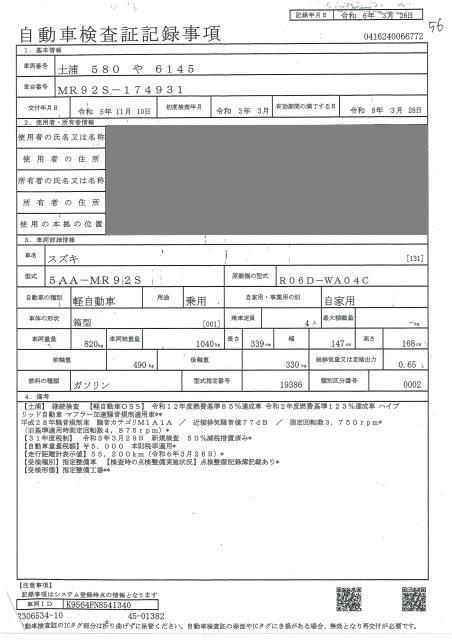 記録年月日 令和 6年 3月 26日
56
自動車検査証記録事項 0416240066772
1. 基本情報
車両番号 土浦 580 や 6145
車台番号 MR92S-174931
交付年月日 令和 5年 11月 10日 初度検査年月 令和 3年 3月 有効期間の満了する日 令和 8年 3月 28日
2. 使用者・所有者情報
使用者の氏名又は名称
使用者の住所
所有者の氏名又は名称
所有者の住所
使用の本拠の位置
3. 車両詳細情報
車名 スズキ [131]
型式 5AA-MR92S 原動機の型式 R06D-WA04C
自動車の種別 軽自動車 用途 乗用 自家用・事業用の別 自家用
車体の形状 箱型 [001] 乗車定員 4人 最大積載量 -kg
車両重量 820kg 車両総重量 1040kg 長さ 339cm 幅 147cm 高さ 168cm
前軸重 490kg 後軸重 330kg 総排気量又は定格出力 0.65 L
燃料の種類 ガソリン 型式指定番号 19386 類別区分番号 0002
4. 備考
【土浦】 継続検査 【軽自動車OSS】 令和12年度燃費基準85%達成車 令和2年度燃費基準123%達成車 ハイブ
リッド自動車 マフラー加速騒音規制適用車**
平成28年騒音規制車 騒音カテゴリM1A1A / 近接排気騒音値77dB / 測定回転数3,750rpm*
(旧基準適用時測定回転数4,875rpm)*
【31年度税制】 令和3年3月29日 新規検査 50%減税措置済み*
【自動車重量税額】 ¥5,000 本則税率適用*
【走行距離計表示値】 55,200km(令和6年3月26日)*
【受検種別】指定整備車 【検査時の点検整備実施状況】点検整備記録簿記載あり*
【受検形態】指定整備工場**
【注意事項】
記録事項はシステム登録時点の情報となります
車両ID K9564FN8541340
2306534-10 45-01382
動車検査証のICタグ部分は折り曲げずに保管ください。自動車検査証の券面やICタグにき損がある場合、無効となり再交付が必要です。